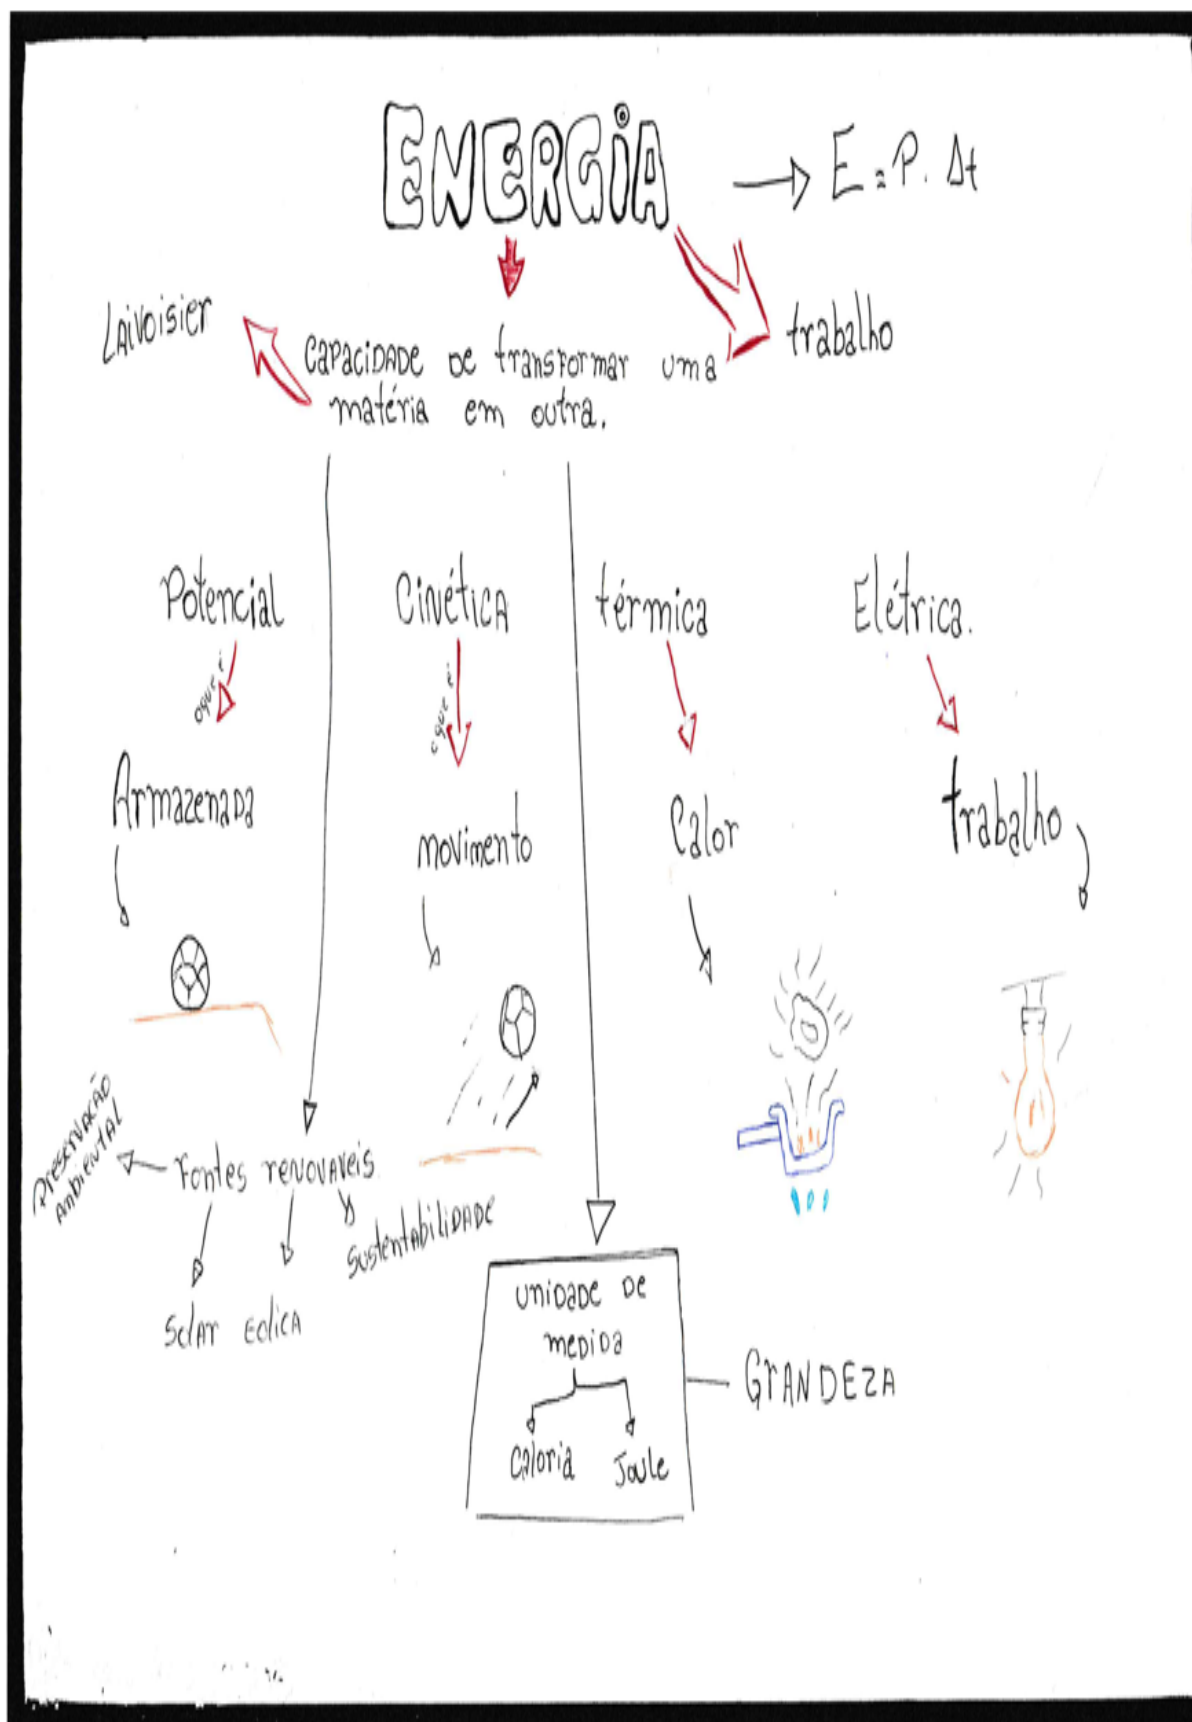 ENERGiA
→ E = P. Δt
LAivoisier
CAPACiDADE DE transformar uma
matéria em outra.
trabalho
Potencial
Cinética
térmica
Elétrica.
oque é
oque é
Armazenada
movimento
Calor
trabalho
Preservação
Ambiental
Fontes renovaveis
Sustentabilidade
Solar Eolica
unidade de
medida
Caloria Joule
GrANDEZA